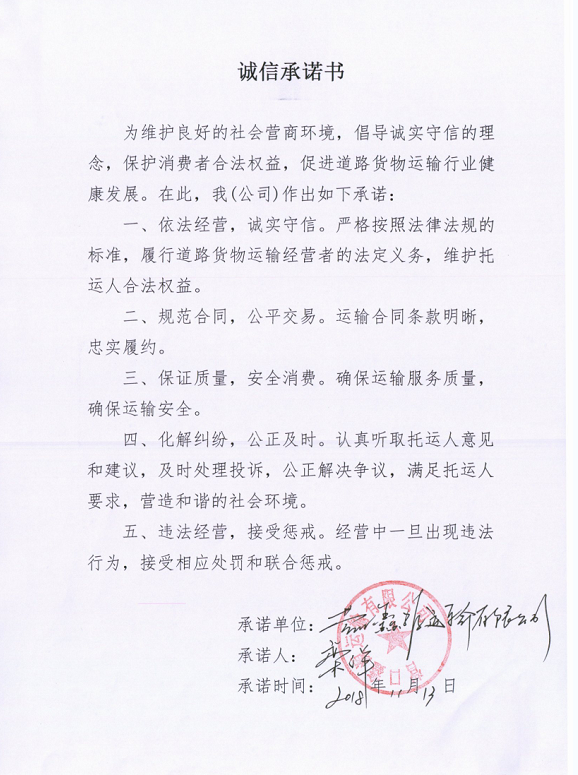 诚信承诺书
为维护良好的社会营商环境，倡导诚实守信的理
念，保护消费者合法权益，促进道路货物运输行业健
康发展。在此，我(公司)作出如下承诺：
一、依法经营，诚实守信。严格按照法律法规的
标准，履行道路货物运输经营者的法定义务，维护托
运人合法权益。
二、规范合同，公平交易。运输合同条款明晰，
忠实履约。
三、保证质量，安全消费。确保运输服务质量，
确保运输安全。
四、化解纠纷，公正及时。认真听取托运人意见
和建议，及时处理投诉，公正解决争议，满足托运人
要求，营造和谐的社会环境。
五、违法经营，接受惩戒。经营中一旦出现违法
行为，接受相应处罚和联合惩戒。
承诺单位：运输有限公司
承诺人：
承诺时间：2018年11月13日